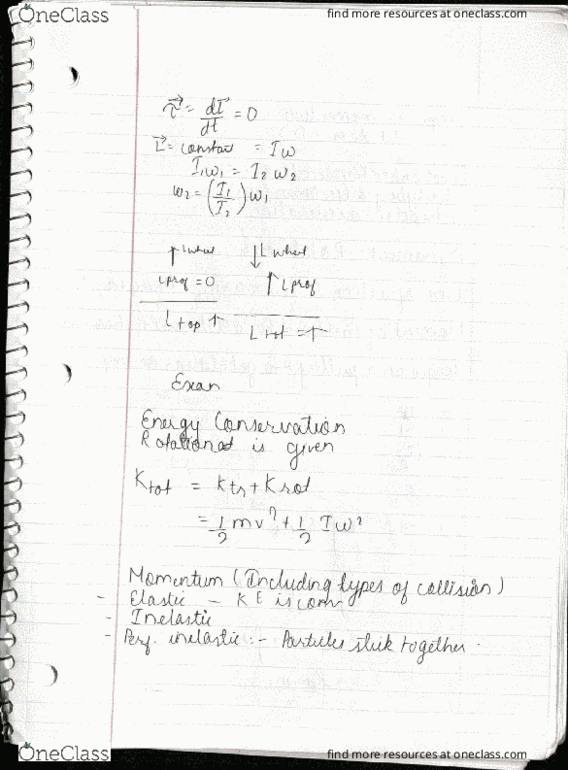 OneClass
find more resources at oneclass.com
τ⃗ = dL⃗/dt = 0
L⃗ = constat = Iω
I₁ω₁ = I₂ω₂
ω₂ = (I₁/I₂) ω₁
↑ Lwheel ↓ L wheel
Lprof = 0 ↑ Lprof
L top ↑ L tot = ↑
Exam
Energy Conservation
Rotational is given
Ktot = Ktr + Krot
= 1/2 mv² + 1/2 Iω²
Momentum (Including types of collision)
- Elastic - KE is conv
- Inelastic
- Perf. inelastic :- Particles stick together.
OneClass
find more resources at oneclass.com